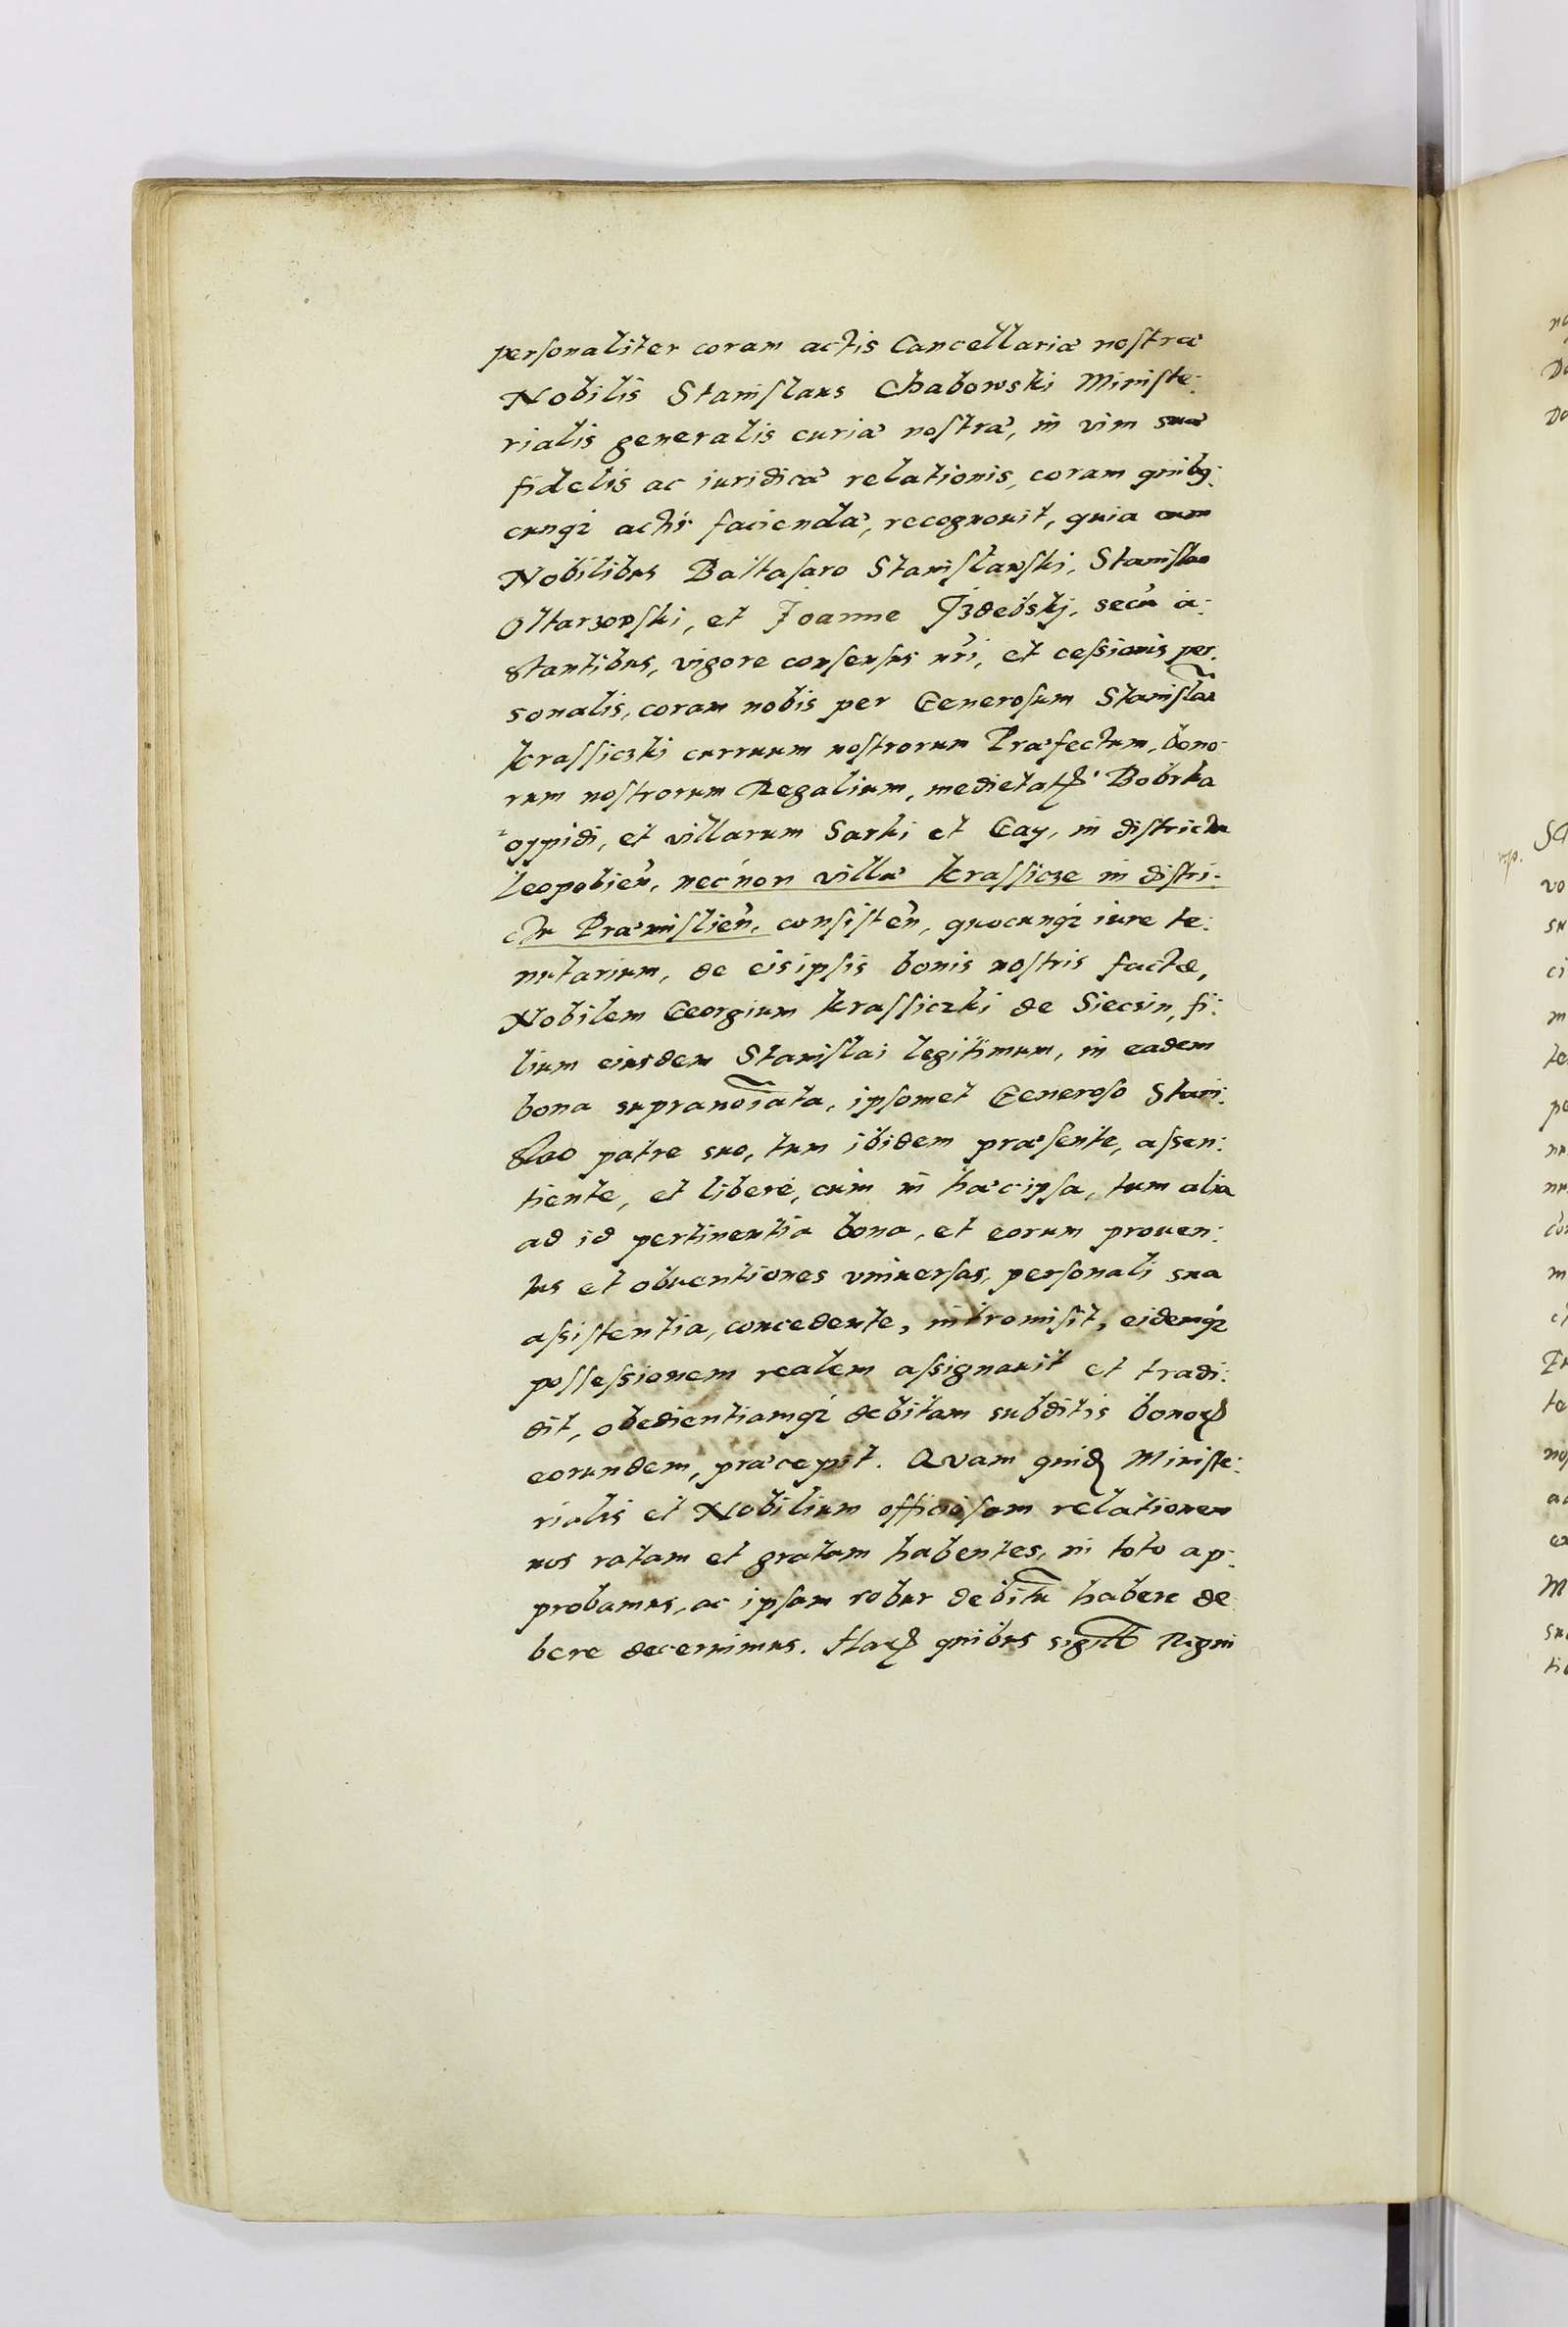 personaliter coram actis Cancellariæ nostræ
Nobilis Stanislaus Chabowski Ministe:
rialis generalis curiæ nostræ, in vim suæ
fidelis ac iuridicæ relationis, coram quibꝰ:
cunqꝫ actis faciendæ, recognouit, quia cum
Nobilibus Baltasaro Stanislawski, Stanislao
Oltarzowski, et Joanne Jzdebskj, secũ a:
stantibus, vigore consensus nr̃i, et cessionis per:
sonalis, coram nobis per Generosum Stanislaũ
Krassiczki curruum nostrorum Præfectum, bono
rum nostrorum Regalium, medietatꝭ Bobrka
oppidi, et villarum Sarki et Gay, in districtu
Leopolien̄, nec non villæ Krassicze in distri:
ctu Præmislien̄, consisten̄, quocunqꝫ iure te:
nutarium, de eisipsis bonis nostris factæ,
Nobilem Georgium Krassiczki de Sieczin, fi:
lium eiusdem Stanislai legitimum, in eadem
bona supranoĩata, ipsomet Generoso Stani:
slao patre suo, tum ibidem præsente, assen:
tiente, et liberè, cùm in hæc ipsa, tum alia
ad id pertinentia bona, et eorum prouen:
tus et obuentiones vniuersas, personali sua
assistentia, concedente, intromisit, eidemqꝫ
possessionem realem assignauit et tradi:
dit, obedientiamqꝫ debitam subditis bonoꝝ
eorundem, præcepit. Quam quid Ministe:
rialis et Nobilium officiosam relationem
nos ratam et gratam habentes, in toto ap:
probamus, ac ipsam robur debitũ habere de
bere decernimus. Haꝝ quibus sigill Regni